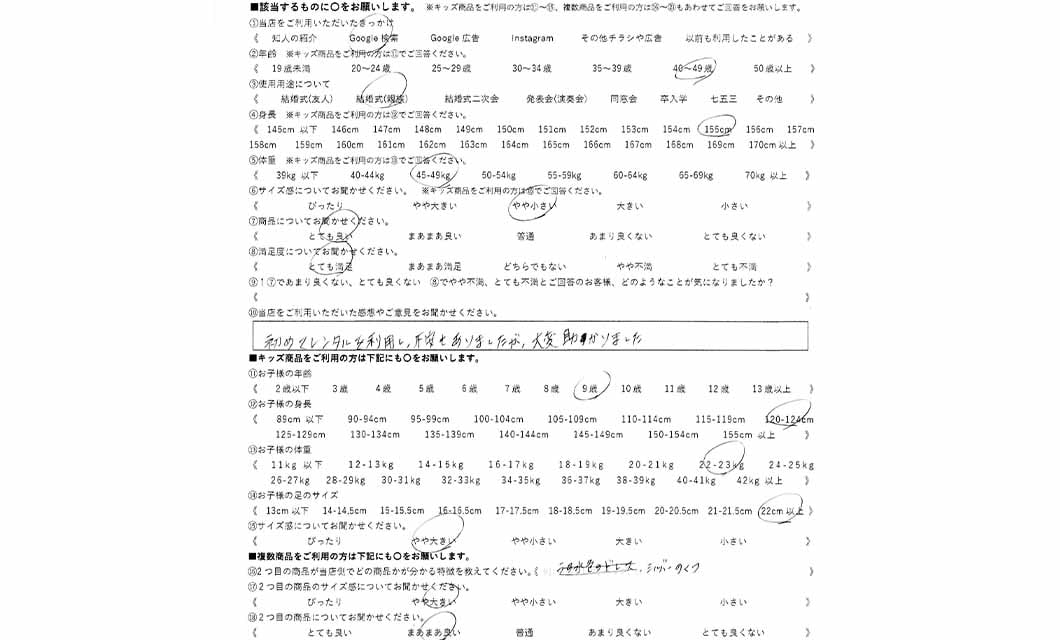 ■該当するものに○をお願いします。 ※キッズ商品をご利用の方は⑪~⑮、複数商品をご利用の方は⑯~⑳もあわせてご回答をお願いします。
①当店をご利用いただいたきっかけ
《 知人の紹介 Google 検索 Google 広告 Instagram その他チラシや広告 以前も利用したことがある 》
②年齢 ※キッズ商品をご利用の方は⑪でご回答ください。
《 19歳未満 20~24歳 25~29歳 30~34歳 35~39歳 40~49歳 50歳以上 》
③使用用途について
《 結婚式(友人) 結婚式(親族) 結婚式二次会 発表会(演奏会) 同窓会 卒入学 七五三 その他 》
④身長 ※キッズ商品をご利用の方は⑫でご回答ください。
《 145cm 以下 146cm 147cm 148cm 149cm 150cm 151cm 152cm 153cm 154cm 155cm 156cm 157cm
158cm 159cm 160cm 161cm 162cm 163cm 164cm 165cm 166cm 167cm 168cm 169cm 170cm 以上 》
⑤体重 ※キッズ商品をご利用の方は⑬でご回答ください。
《 39kg 以下 40-44kg 45-49kg 50-54kg 55-59kg 60-64kg 65-69kg 70kg 以上 》
⑥サイズ感についてお聞かせください。 ※キッズ商品をご利用の方は⑮でご回答ください。
《 ぴったり やや大きい やや小さい 大きい 小さい 》
⑦商品についてお聞かせください。
《 とても良い まあまあ良い 普通 あまり良くない とても良くない 》
⑧満足度についてお聞かせください。
《 とても満足 まあまあ満足 どちらでもない やや不満 とても不満 》
⑨↑⑦であまり良くない、とても良くない ⑧でやや不満、とても不満とご回答のお客様、どのようなことが気になりましたか?
《 》
⑩当店をご利用いただいた感想やご意見をお聞かせください。
初めてレンタルを利用し、不安もありましたが、大変助かりました
■キッズ商品をご利用の方は下記にも○をお願いします。
⑪お子様の年齢
《 2歳以下 3歳 4歳 5歳 6歳 7歳 8歳 9歳 10歳 11歳 12歳 13歳以上 》
⑫お子様の身長
《 89cm 以下 90-94cm 95-99cm 100-104cm 105-109cm 110-114cm 115-119cm 120-124cm
125-129cm 130-134cm 135-139cm 140-144cm 145-149cm 150-154cm 155cm 以上 》
⑬お子様の体重
《 11kg 以下 12-13kg 14-15kg 16-17kg 18-19kg 20-21kg 22-23kg 24-25kg
26-27kg 28-29kg 30-31kg 32-33kg 34-35kg 36-37kg 38-39kg 40-41kg 42kg 以上 》
⑭お子様の足のサイズ
《 13cm 以下 14-14.5cm 15-15.5cm 16-16.5cm 17-17.5cm 18-18.5cm 19-19.5cm 20-20.5cm 21-21.5cm 22cm 以上 》
⑮サイズ感についてお聞かせください。
《 ぴったり やや大きい やや小さい 大きい 小さい 》
■複数商品をご利用の方は下記にも○をお願いします。
⑯2つ目の商品が当店側でどの商品かが分かる特徴を教えてください。《 水色のドレス、シルバーのくつ 》
⑰2つ目の商品のサイズ感についてお聞かせください。
《 ぴったり やや大きい やや小さい 大きい 小さい 》
⑱2つ目の商品についてお聞かせください。
《 とても良い まあまあ良い 普通 あまり良くない とても良くない 》